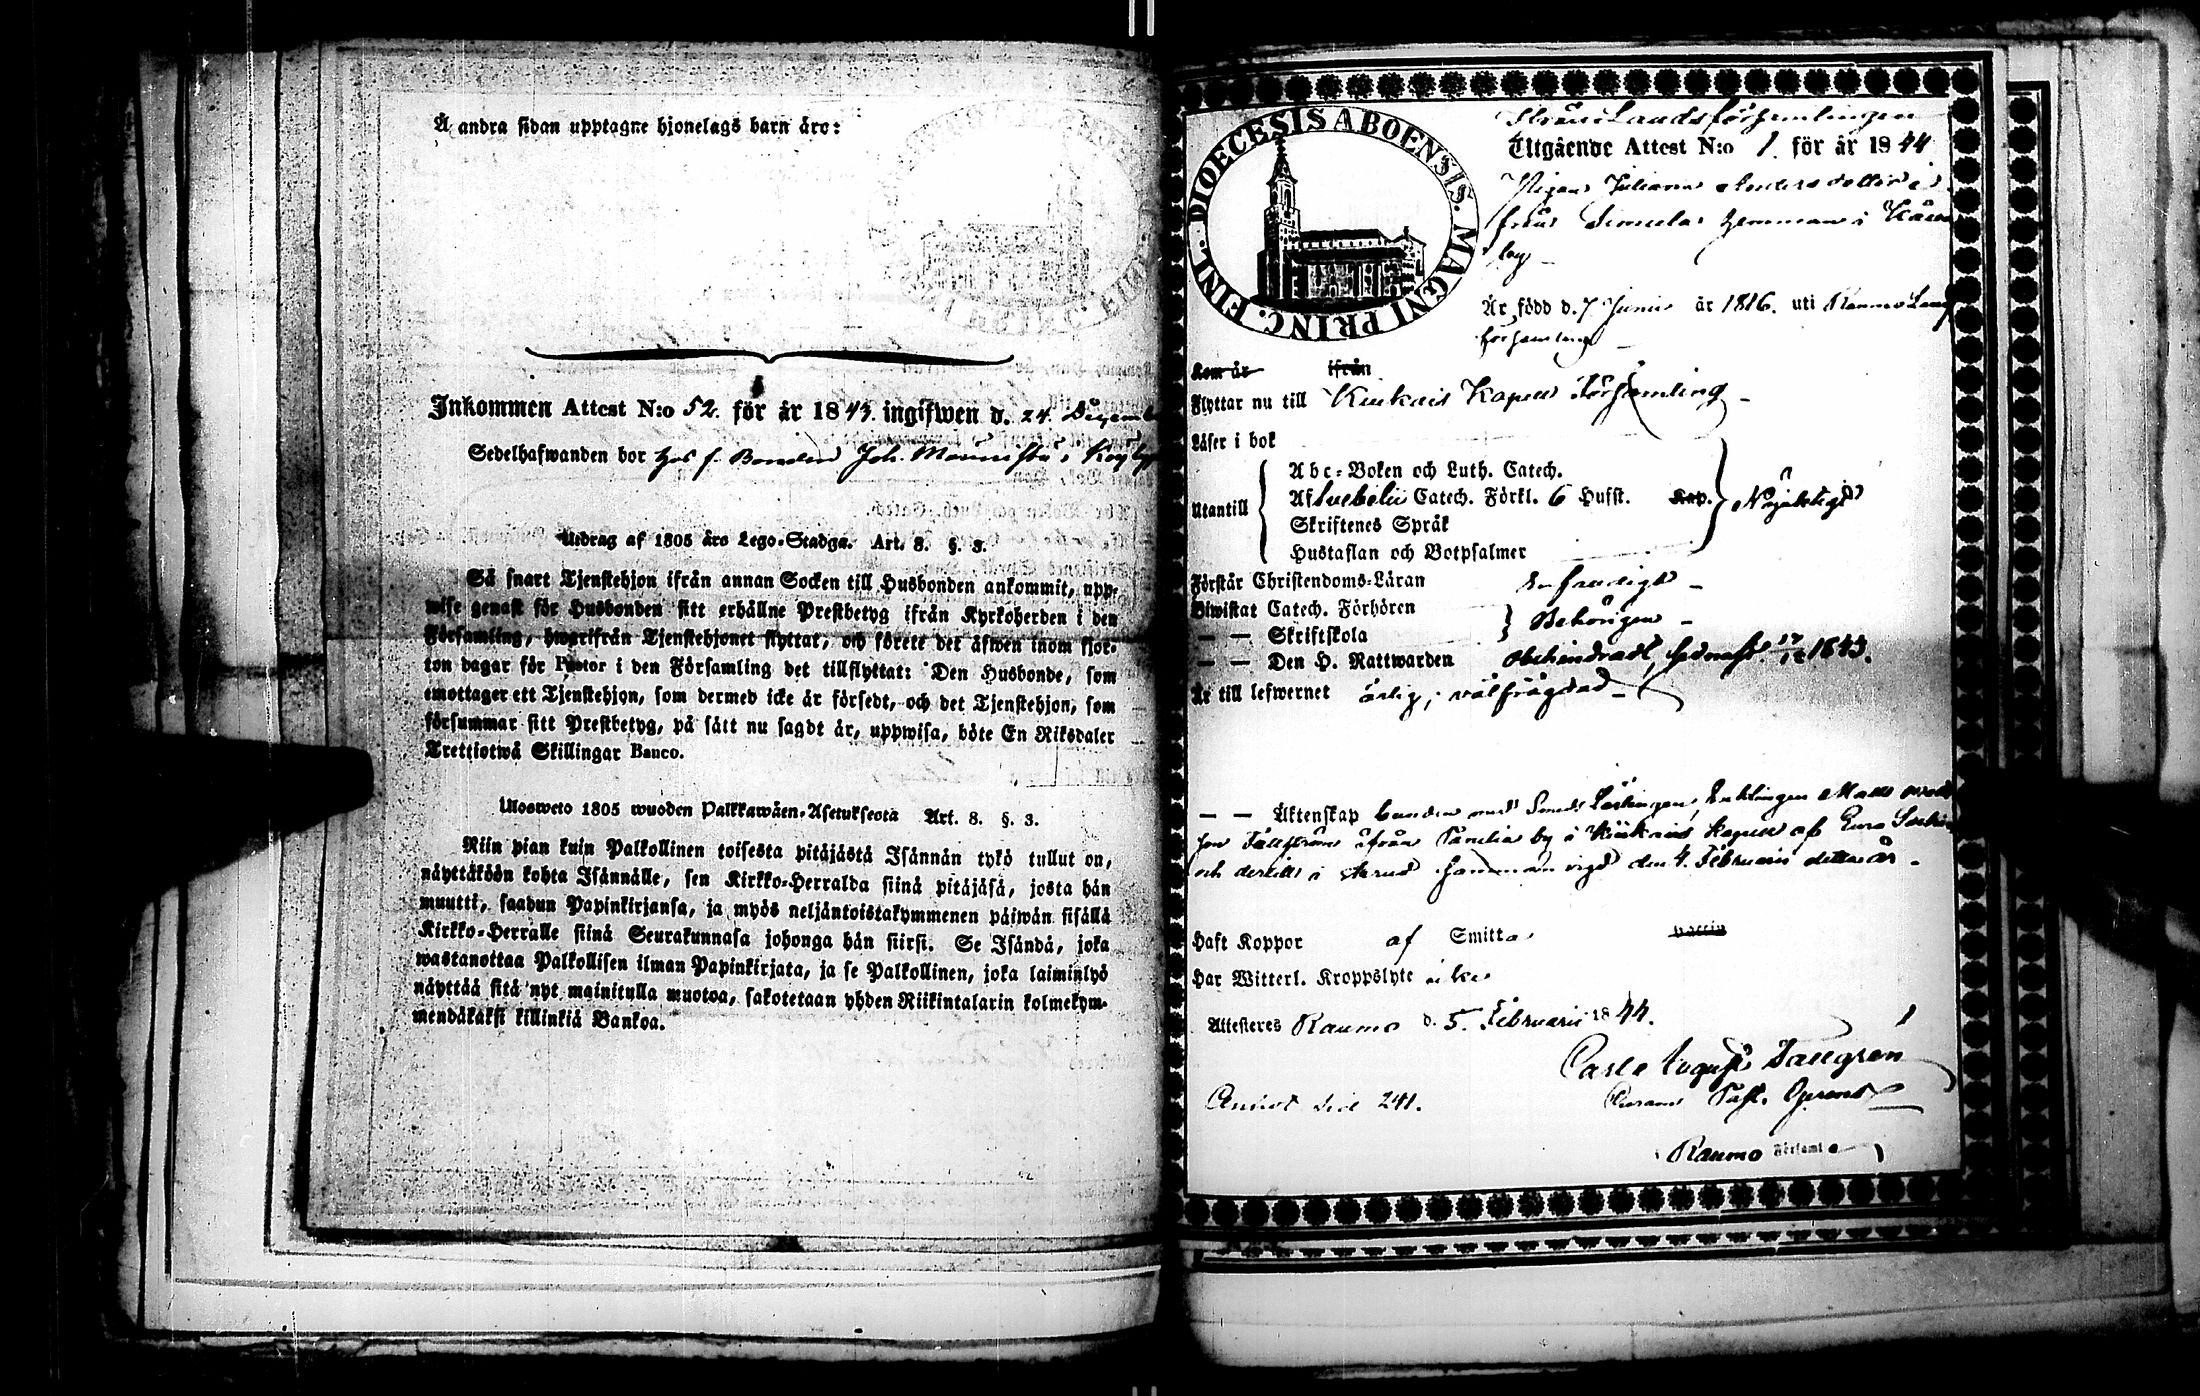 Å andra sidan upptagne hjonelags barn äro:
Inkommen Attest N:o 52. för år 1843. ingifwen d. 24. Decemb
Sedelhafwanden bor hos f. Bonden Joh.
Utdrag af 1805 års Lego-Stadga. Art. 8. §. 3.
Så snart Tjenstehjon ifrån annan Socken till Husbonden ankommit, upp-
wise genast för Husbonden sitt erhållne Prestbetyg ifrån Kyrkoherden i den
Församling, hwarifrån Tjenstehjonet flyttat, och förete det äfwen inom fjor-
ton dagar för Pastor i den Församling det tillflyttat: Den Husbonde, som
emottager ett Tjenstehjon, som dermed icke är försedt, och det Tjenstehjon, som
försummar sitt Prestbetyg, på sätt nu sagdt är, uppwisa, böte En Riksdaler
Trettiotwå Skillingar Banco.
Ulosweto 1805 wuoden Palkkawäen-Asetuksesta Art. 8. §. 3.
Niin pian kuin Palkollinen toisesta pitäjästä Isännän tykö tullut on,
näyttäköön kohta Isännälle, sen Kirkko-Herralda siinä pitäjäsä, josta hän
muutti, saadun Papinkirjansa, ja myös neljäntoistakymmenen päiwän sisällä
Kirkko-Herralle siinä Seurakunnasa johonga hän siirsi. Se Isändä, joka
wastanottaa Palkollisen ilman Papinkirjata, ja se Palkollinen, joka laiminlyö
näyttää sitä nyt mainitulla muotoa, sakotetaan yhden Riikintalarin kolmekym-
mendäkaksi killinkiä Bankoa.
DIOECESIS ABOENSIS. MAGNI PRINC. FINL.
Landsförsamlingen
Utgående Attest N:o 1. för år 1844
Pigan Juliana Andersdotter
från hemman i
by
Är född d. 7 Junii år 1816. uti Raumo Lands
församling
Kom år ifrån
Flyttar nu till Kiukais Kapell Församling
Läser i bok
Utantill
Abc-Boken och Luth. Catech.
Af Svebelii Catech. Förkl. 6 Hufst. Kap.
Skriftenes Språk
Hustaflan och Botpsalmer
Nöjaktigt
Förstår Christendoms-Läran enfaldigt
Biwistat Catech. Förhören
— — Skriftskola
Behörigen
— — Den H. Nattwarden obehindradt, sednast 17/12 1843.
Är till lefwernet ärlig, välfrägdad
— — Äktenskap bunden med Enklingen Matts
ifrån by i Kiukais Kapell af Eura Sockn
och dertill i sammanvigd den 4. Februarii detta år.
Haft Koppor af Smitta Vaccin
Har Witterl. Kroppslyte icke
Attesteres Raumo d. 5. Februarii 1844.
Carl August Tallgrén
Past.
Annot. sid 241.
Raumo Församl